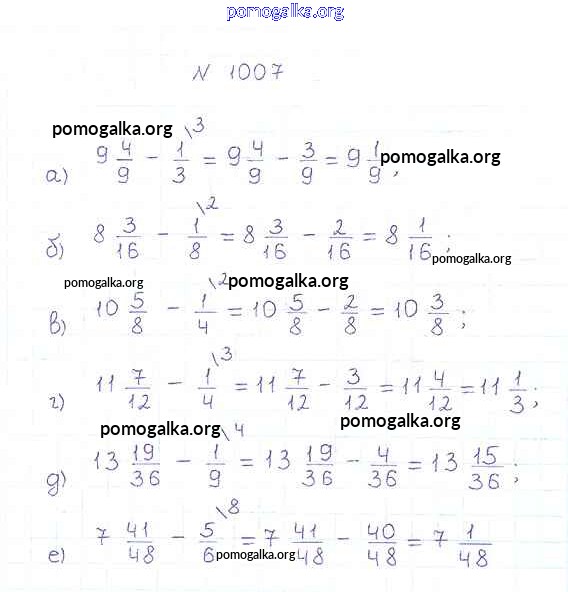 pomogalka.org
N 1007
pomogalka.org
а) 9 4/9 - 1/3 \3 = 9 4/9 - 3/9 = 9 1/9; pomogalka.org
б) 8 3/16 - 1/8 \2 = 8 3/16 - 2/16 = 8 1/16; pomogalka.org
pomogalka.org pomogalka.org
в) 10 5/8 - 1/4 \2 = 10 5/8 - 2/8 = 10 3/8;
г) 11 7/12 - 1/4 \3 = 11 7/12 - 3/12 = 11 4/12 = 11 1/3;
pomogalka.org pomogalka.org
д) 13 19/36 - 1/9 \4 = 13 19/36 - 4/36 = 13 15/36;
е) 7 41/48 - 5/6 \8 = 7 41/48 - 40/48 = 7 1/48
pomogalka.org